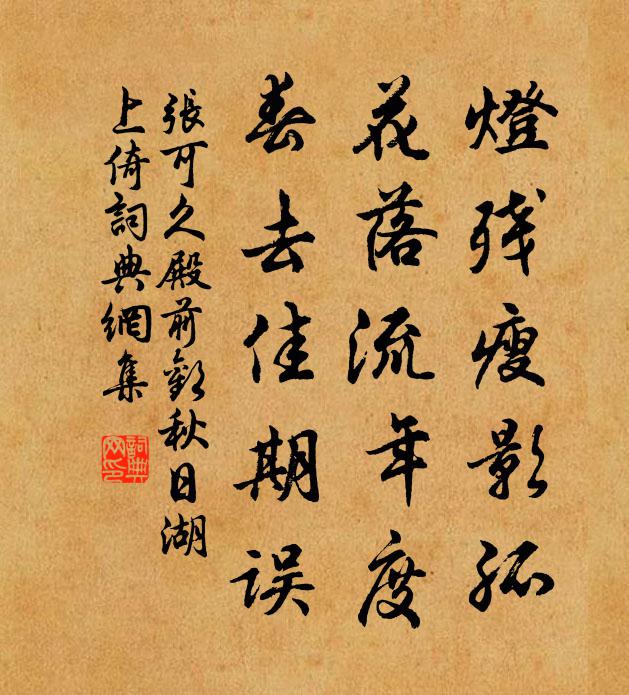 燈残瘦影孤
花落流年度
春去佳期误
張可久殿前歡秋日湖
上倚詞典網集
詞典网印